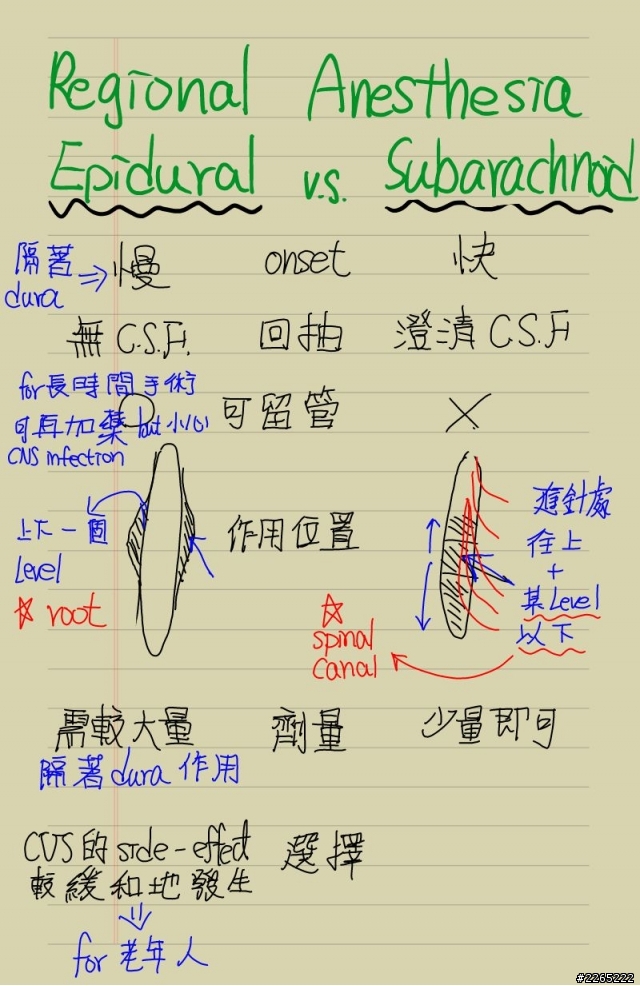 Regional Anesthesia
Epidural v.s. Subarachnoid
隔著
dura
⇒慢 onset 快
無 C.S.F. 回抽 澄清 C.S.F
for長時間手術
可再加藥 but 小心
CNS infection
○ 可留管 ×
上下一個
Level
☆ root
作用位置
進針處
往上
+
某Level
以下
☆
spinal
canal
需較大量 劑量 少量即可
隔著dura作用
CVS的side-effect 選擇
較緩和地發生
⇓
for 老年人
#2265222